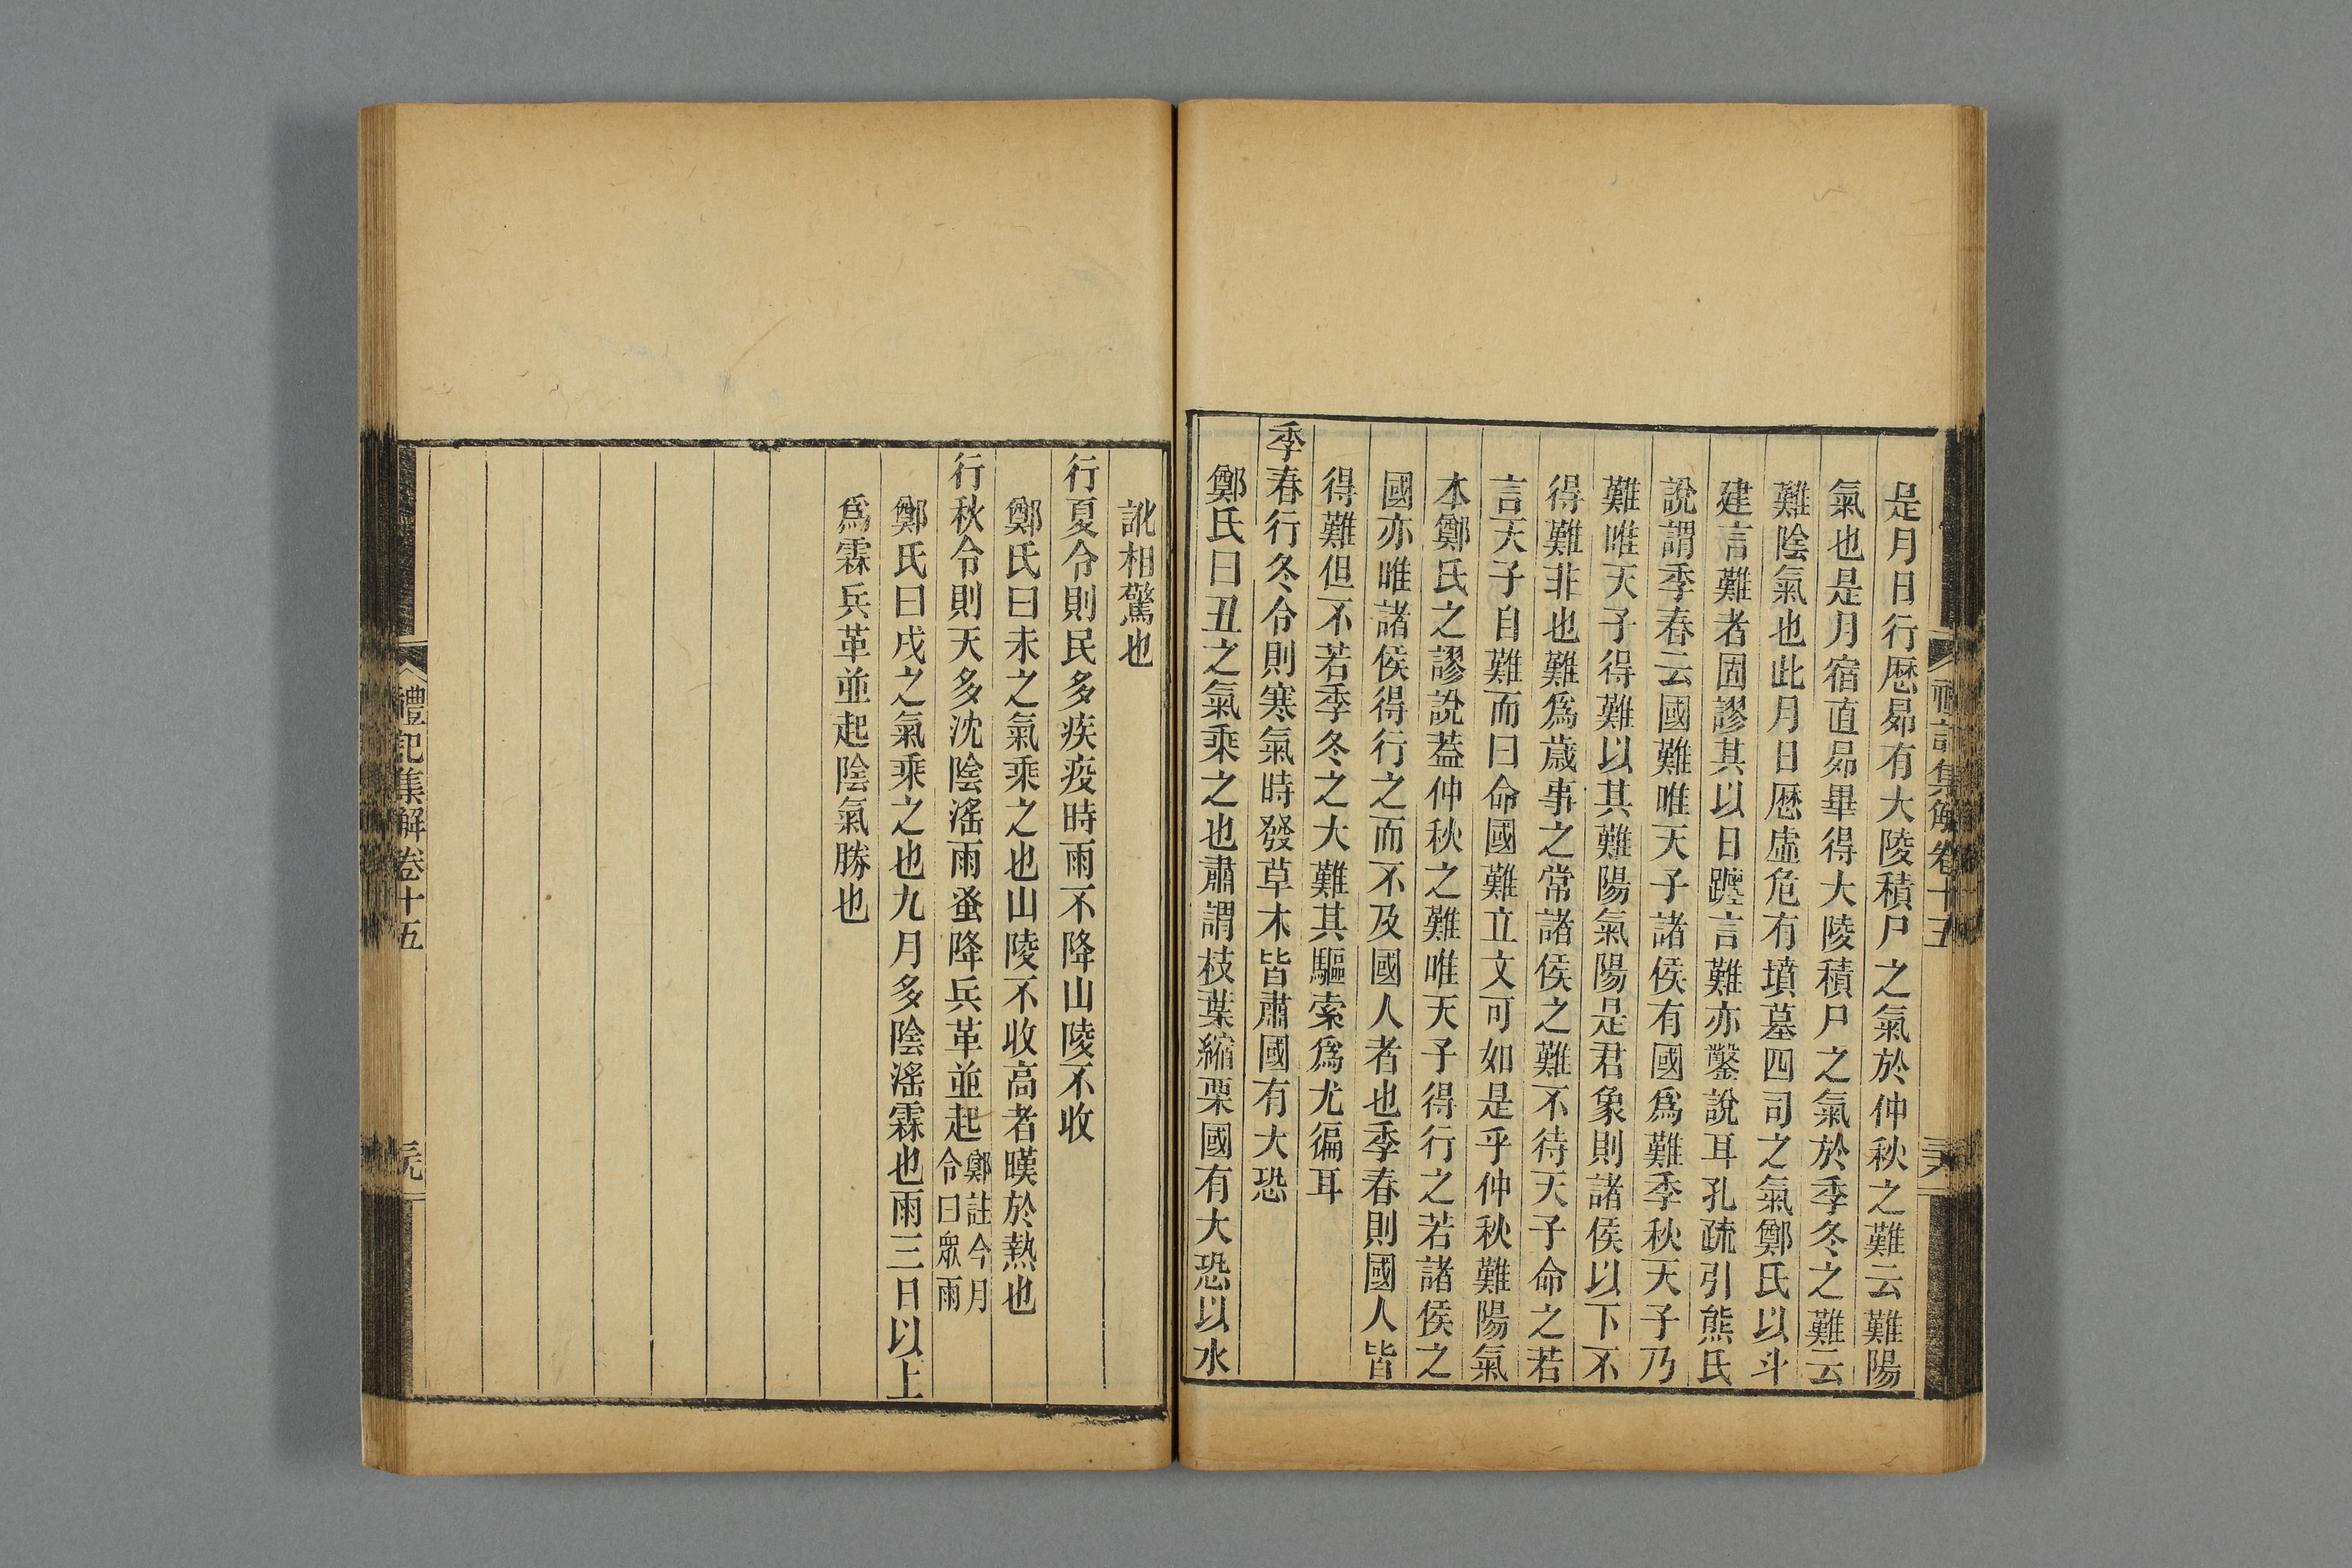 禮記集解卷十五
是月日行歷昴有大陵積尸之氣於仲秋之難云難陽
氣也是月宿直昴畢得大陵積尸之氣於季冬之難云
難陰氣也此月日歷虛危有墳墓四司之氣鄭氏以斗
建言難者固謬其以日躔言難亦鑿說耳孔疏引熊氏
說謂季春云國難唯天子諸侯有國爲難季秋天子乃
難唯天子得難以其難陽氣陽是君象則諸侯以下不
得難非也難爲歲事之常諸侯之難不待天子命之若
言天子自難而曰命國難立文可如是乎仲秋難陽氣
本鄭氏之謬說蓋仲秋之難唯天子得行之若諸侯之
國亦唯諸侯得行之而不及國人者也季春則國人皆
得難但不若季冬之大難其驅索爲尤徧耳
季春行冬令則寒氣時發草木皆肅國有大恐
鄭氏曰丑之氣乘之也肅謂枝葉縮栗國有大恐以水
訛相驚也
行夏令則民多疾疫時雨不降山陵不收
鄭氏曰未之氣乘之也山陵不收高者暵於熱也
行秋令則天多沈陰淫雨蚤降兵革並起鄭註今月
令曰眾雨
鄭氏曰戌之氣乘之也九月多陰淫霖也雨三日以上
爲霖兵革並起陰氣勝也
禮記集解卷十五